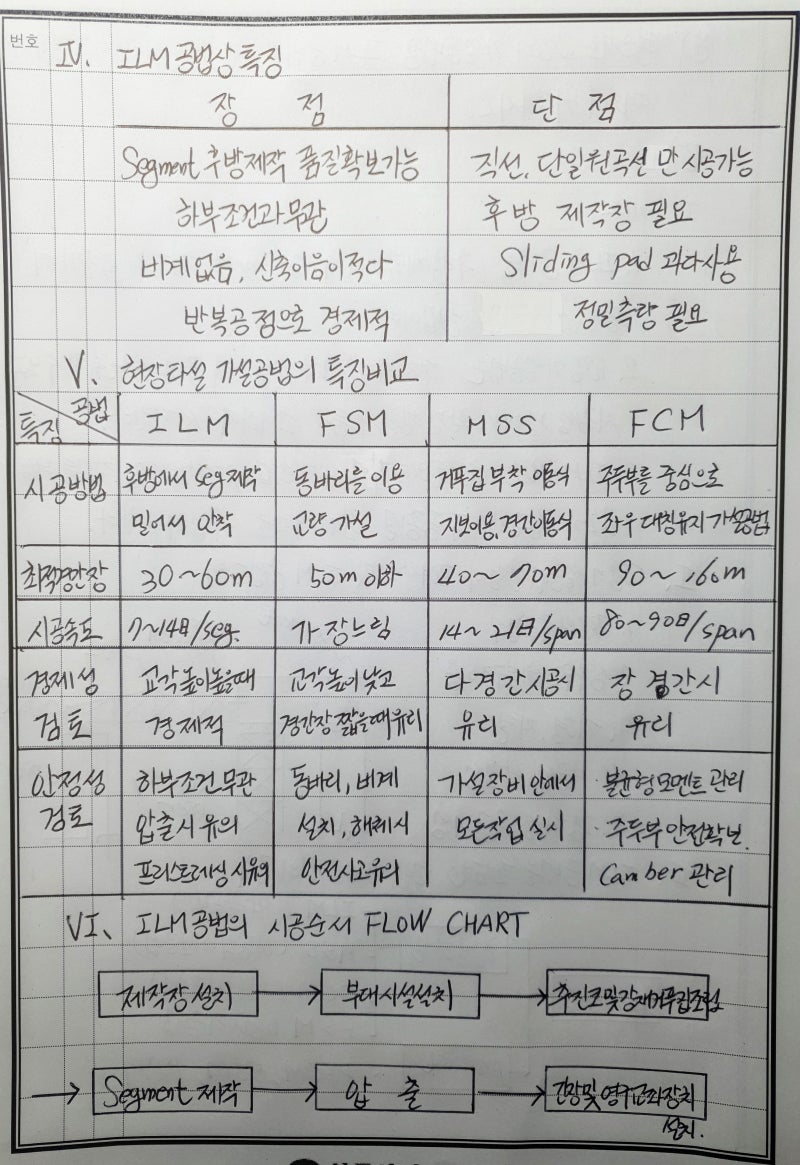 번호
IV. ILM 공법상 특징
장 점 단 점
Segment 후방제작 품질확보가능 직선, 단일원곡선 만 시공가능
하부조건과무관 후방 제작장 필요
비계없음, 신축이음이적다 Sliding pad 과다사용
반복공정으로 경제적 정밀측량 필요
V. 현장타설 가설공법의 특징비교
특징 공법 ILM FSM MSS FCM
시공방법 후방에서 Seg제작 동바리를 이용 거푸집 부착 이동식 주두부를 중심으로
밀어서 안착 교량가설 지보이용, 경간이동식 좌우 대칭유지 가설공법
최적경간장 30~60m 50m 이하 40~70m 90~160m
시공속도 7~14日/seg. 가장느림 14~21日/span 80~90日/span
경제성 교각높이높을때 교각높이 낮고 다경간시공시 장 경간시
검토 경제적 경간장 짧을때 유리 유리 유리
안정성 하부조건 무관 동바리, 비계 가설장비 안에서 불균형모멘트 관리
검토 압출시 유의 설치, 해체시 모든작업 실시 주두부 안전확보.
프리스트레싱 시유의 안전사고유의 Camber 관리
VI. ILM공법의 시공순서 FLOW CHART
제작장 설치 → 부대시설설치 → 추진코및강재거푸집조립
→ Segment 제작 → 압 출 → 긴장및영구교좌장치
설치.